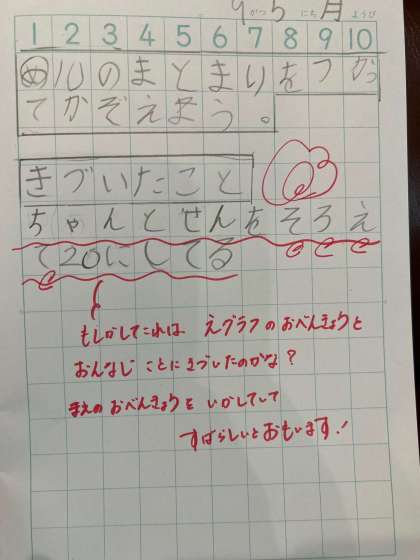 9がつ5にち月ようび
1 2 3 4 5 6 7 8 9 10
め 10のまとまりをつかっ
てかぞえよう。
きづいたこと
ちゃんとせんをそろえ
て20にしてる
もしかしてこれは えグラフのおべんきょうと
おんなじ ことにきづいたのかな?
まえの おべんきょうを いかしていて
すばらしいとおもいます!